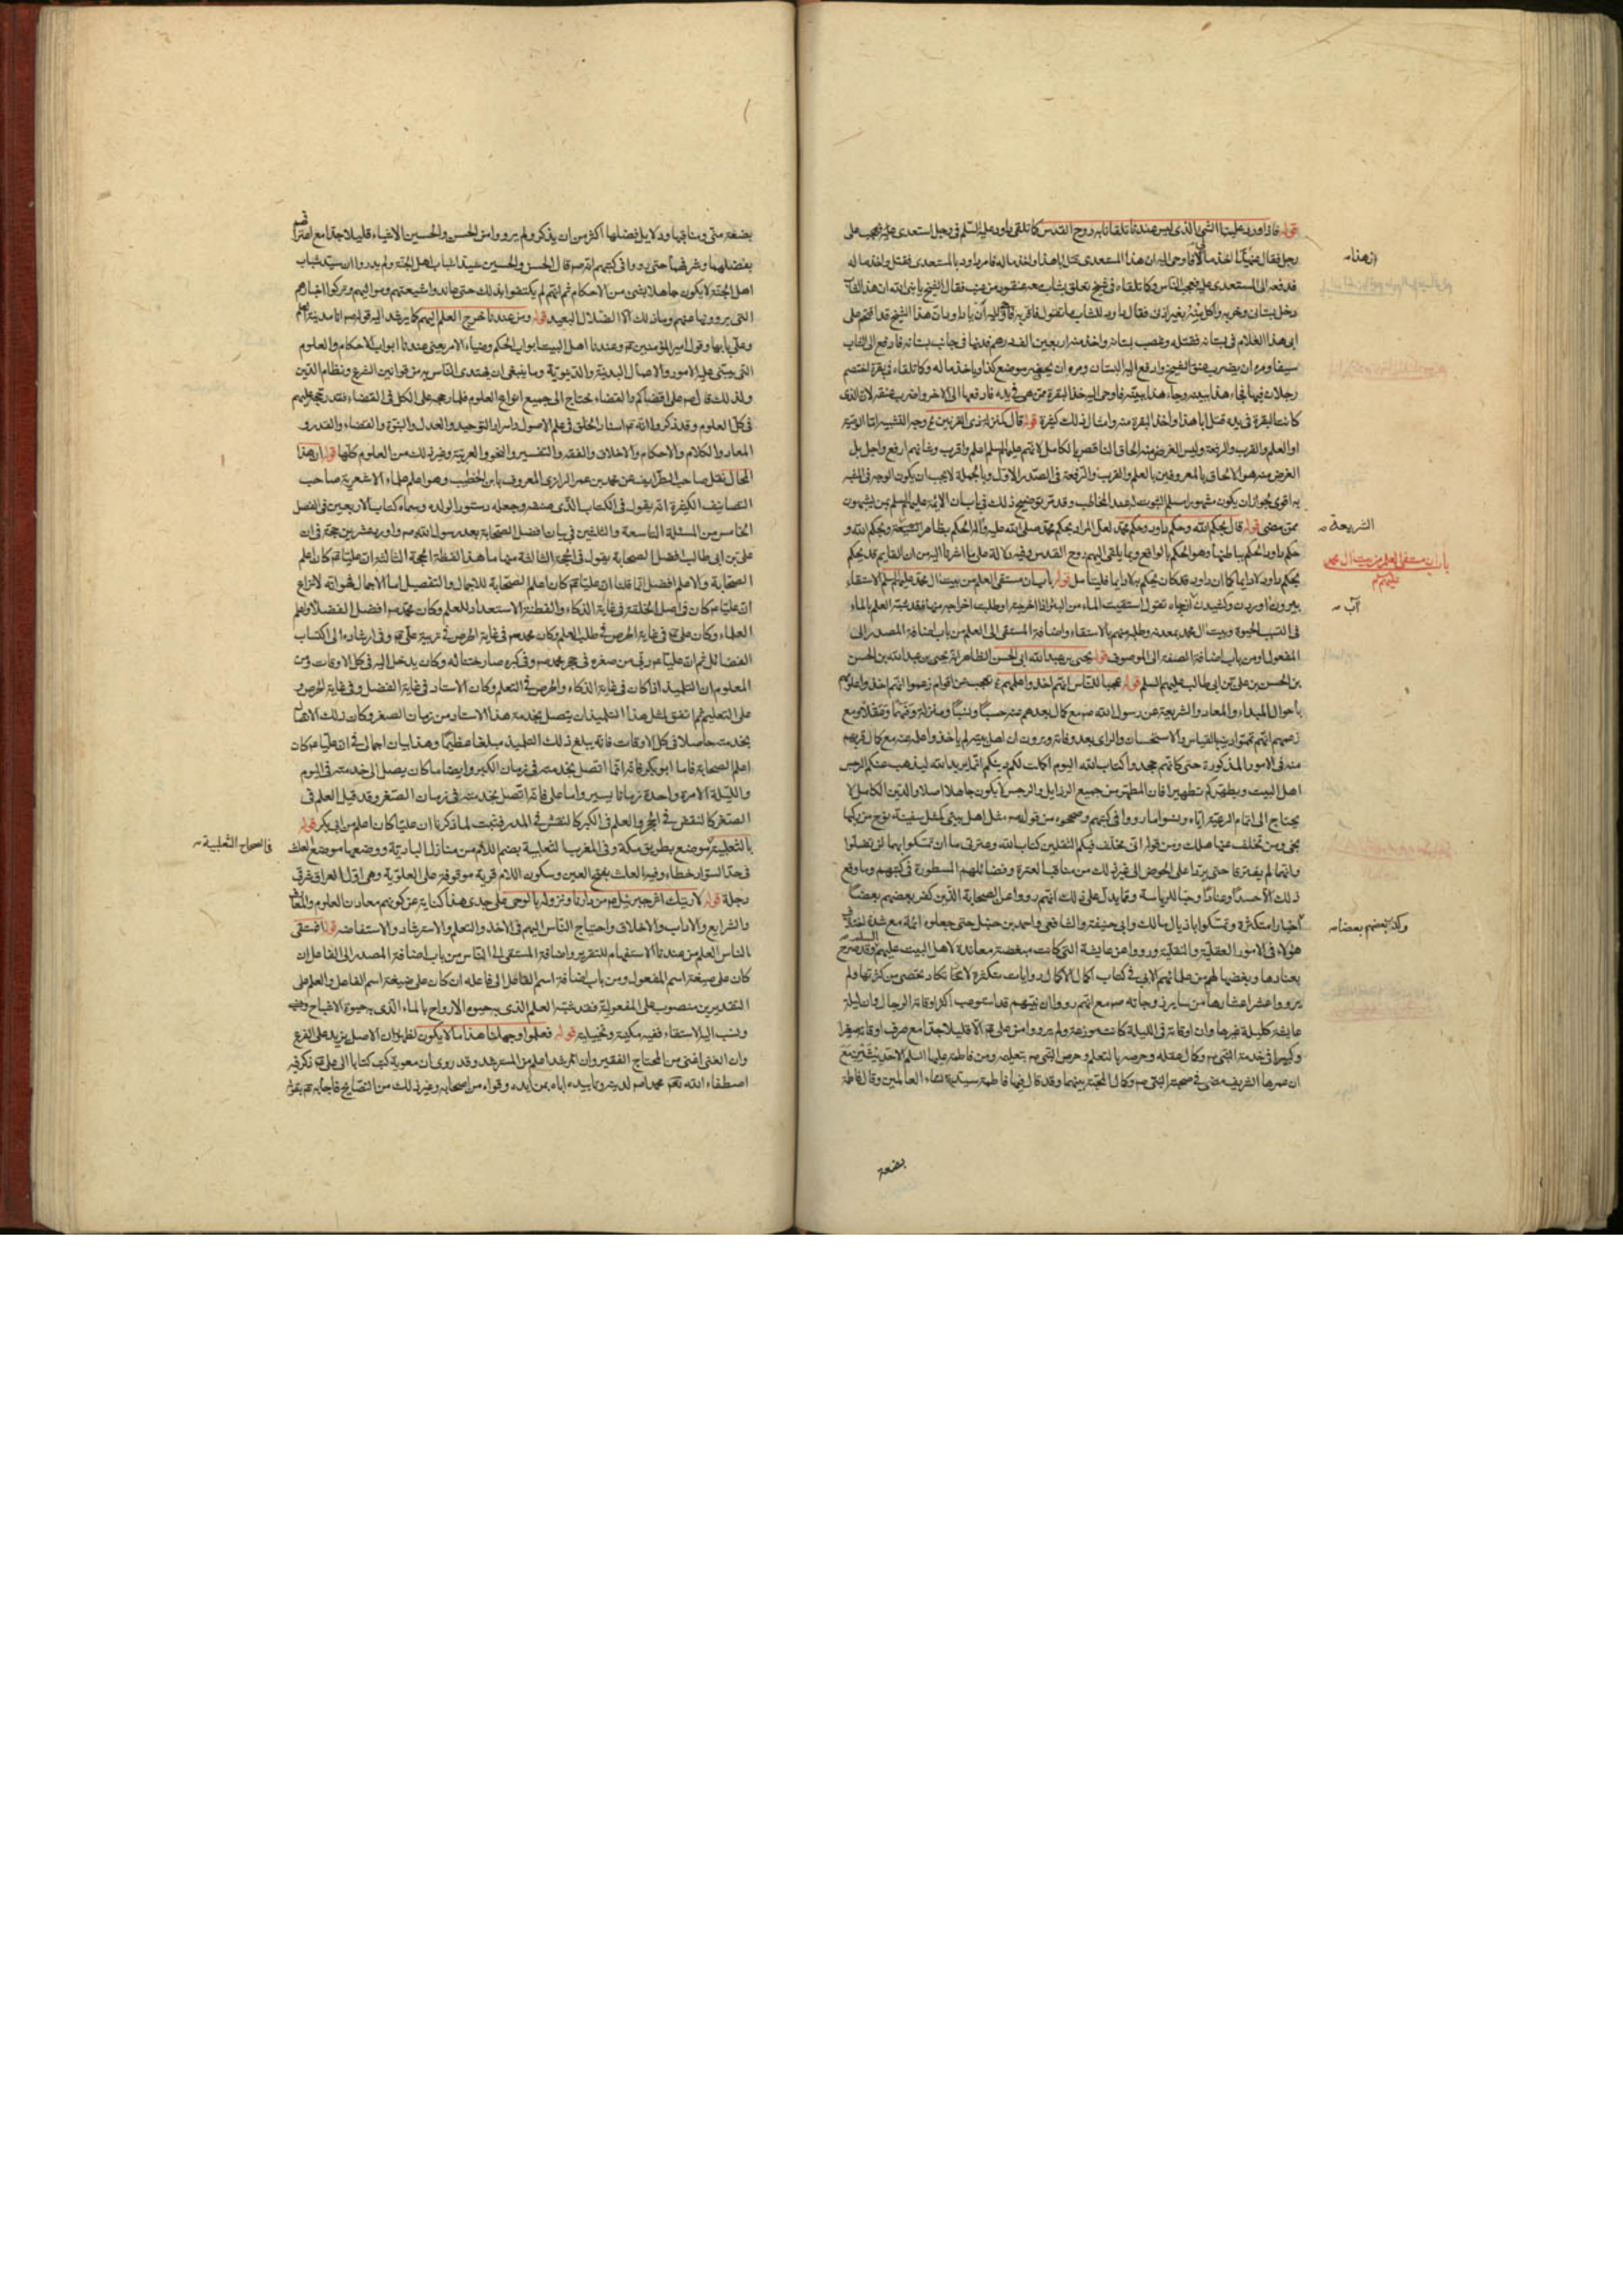 قوله فاذا ورد علينا الشئ الذى ليس عندنا تلقانا به روح القدس كما تلقى داود عليه السلم فى رجل استعدى على رجل
رجل فقال ان هذا اخذ مالى فاوحى اليه ان هذا المستعدى قتل ابا هذا واخذ ماله فامر داود بالمستعدى فقتل واخذ ماله
فدفعه الى المستعدى عليه فعجب الناس وكما تلقاه فى شيخ تعلق بشاب معه عنقود من عنب فقال الشيخ يا نبى الله ان هذا الشاب
دخل بستانى وخربه واكل بغير اذنى فقال داود للشاب ما تقول فاقر به فاوحى اليه ان يا داود هذا الشيخ قد اقتحم على
ابى هذا الغلام فى بستانه فقتله وغصب بستانه واخذ منه اربعين الف درهم فدفنها فى جانب بستانه فادفع الى الشاب
سيفا ومره ان يضرب عنق الشيخ وادفع اليه البستان ومره ان يحفر موضع كذا وياخذ ماله وكما تلقاه فى بقرة اختصم
رجلان فيها فجاء هذا ببينة وجاء هذا ببينة فاوحى اليه خذ البقرة ممن هى فى يده فادفعها الى الاخر واضرب عنقه لان الذى
كانت البقرة فى يده قتل ابا هذا واخذ البقرة منه وامثال ذلك كثيرة قوله قال كمنزلة ذى القرنين وجه التشبيه
او العلم والقرب والرفعة وليس الغرض منه الحاق الناقص بالكامل لانهم عليهم السلم اعلم واقرب وشانهم ارفع واجل بل
الغرض منه هو الالحاق بالمعروفين بالعلم والقرب والرفعة فى الصدر الاول وبالجملة لا يجب ان يكون الوجه فى المشبه
به اقوى لجواز ان يكون مشهورا مسلم الثبوت له عند المخاطب وقد مر توضيح ذلك فى باب ان الائمة عليهم السلم بمن يشبهون
ممن مضى قوله قال بحكم الله وحكم داود وحكم محمد لعل المراد بحكم محمد صلى الله عليه وآله الحكم بظاهر الشريعة وبحكم الله و
حكم داود الحكم بباطنها وهو الحكم بالواقع وبما يلقى اليهم روح القدس وفيه دلالة على ما اشرنا اليه من ان القايم قد يحكم
بحكم داود لا دايما كما ان داود قد كان يحكم به لا دايما فليتامل قوله باب ان مستقى العلم من بيت ال محمد عليهم السلم الاستقاء
بيرون اوردن وكشيدن ازچاه تقول استقيت الماء من البئر اذا اخرجته او طلبت اخراجه منها فقد شبه العلم بالماء
فى التسبب للحيوة وبيت ال محمد بمعدنه وطلبه منهم بالاستقاء واضافة المستقى الى العلم من باب اضافة المصدر الى
المفعول او من باب اضافة الصفة الى الموصوف قوله يحيى بن عبد الله ابى الحسن الظاهر انه يحيى بن عبد الله بن الحسن
بن الحسن بن على بن ابى طالب عليهم السلم قوله عجبا للناس انهم اخذوا علمهم تعجب من اقوام زعموا انهم اخذوا علومهم
باحوال المبداء والمعاد والشريعة عن رسول الله صم مع كمال بعدهم منه حسبا ونسبا ومنزلة وفهما وتعقلا ومع
زعمهم انهم بالقياس والاستحسان والراى بعد وفاته ويرون ان اهل بيته لم ياخذوا علمه عنه مع كمال قربهم
منه فى الامور المذكورة حتى كانهم جحدوا كتاب الله اليوم اكملت لكم دينكم انما يريد الله ليذهب عنكم الرجس
اهل البيت ويطهركم تطهيرا فان المطهر من جميع الرذايل والرجس لا يكون جاهلا اصلا والدين الكامل لا
يحتاج الى اتمام الرعية اياه ونسوا ما رووا فى كتبهم وصححوه من قوله صم مثل اهل بيتى كمثل سفينة نوح من ركبها
نجى ومن تخلف عنها هلك ومن قوله انى مخلف فيكم الثقلين كتاب الله وعترتى ما ان تمسكوا بهما لن تضلوا
وانهما لم يفترقا حتى يردا على الحوض الى غير ذلك من مناقب العترة وفضائلهم المسطورة فى كتبهم وما وقع
ذلك الا حسدا وعنادا وحبا للرياسة ومما يدل على ذلك انهم رووا عن الصحابة الذين كفر بعضهم بعضا
اخبارا متكثرة وتمسكوا باذيال مالك وابى حنيفة والشافعى واحمد بن حنبل حتى جعلوه ائمة مع شدة اختلاف
هؤلاء فى الامور العقلية والنقلية ورووا عن عايشة التى كانت مبغضة معاندة لاهل البيت عليهم السلم وقد صرح
بعنادها وبغضها لهم من علمائهم الابى فى كتاب اكمال الاكمال روايات متكثرة لا تكاد تحصى من كثرتها ولم
يرووا عشر اعشارها من ساير زوجاته صم مع انهم رووا ان بيتهم قد استوعب اكثر اوقاته الرجال وان ليلة
عايشة كليلة غيرها وان اوقاته فى الليلة كانت موزعة ولم يرووا من على ع الا قليلا جدا مع صرف اوقاته صغيرا
وكبيرا فى خدمة النبى صم وكمال عقله وحرصه بالتعلم وحرص النبى صم بتعليمه ومن فاطمة عليها السلم الا حديثين مع
ان عمرها الشريف مضى فى صحبة النبى صم وكمال المحبة بينهما وقد قال فيها فاطمة سيدة نساء العالمين وقال فاطمة
بضعة
هذا
الشريعة
باب ان مستقى العلم من بيت ال محمد عليهم السلم
آب
وكفر بعضهم بعضا
بضعة منى ومناقبها ودلايل فضلها اكثر من ان يذكر ولم يرووا من الحسن والحسين الاشياء قليلا جدا مع اعترافهم
بفضلهما وشرفهما حتى رووا فى كتبهم انه صم قال الحسن والحسين سيدا شباب اهل الجنة ولم يدروا ان سيد شباب
اهل الجنة لا يكون جاهلا بشئ من الاحكام ثم انهم لم يكتفوا بذلك حتى عاندوا شيعتهم ومواليهم وتركوا اخبارهم
التى يروونها عنهم وما ذلك الا الضلال البعيد قوله ومن عندنا خرج العلم اليهم كما يرشد اليه قوله صم انا مدينة العلم
وعلى بابها وقول امير المؤمنين ع وعندنا اهل البيت ابواب الحكم وضياء الامر يعنى عندنا ابواب الاحكام والعلوم
التى يبتنى عليها الامور والاعمال البدنية والدنيوية وما ينبغى ان يهتدى الناس به من قوانين الشرع ونظام الدين
ولذلك قال صم على اقضاكم والقضاء يحتاج الى جميع انواع العلوم فلما رجحه على الكل فى القضاء فقد رجحه عليهم
فى كل العلوم وقد ذكروا انه ع استاد الخلق فى علم الاصول واسرار التوحيد والعدل والنبوة والقضاء والقدر و
المعاد والكلام والاحكام والاخلاق والفقه والتفسير والنحو والعربية وغير ذلك من العلوم كلها قوله ان هذا
المحال نقل صاحب الطرايف عن محمد بن عمر الرازى المعروف بابن الخطيب وهو اعلم علماء الاشعرية صاحب
التصانيف الكثيرة انه يقول فى الكتاب الذى صنفه وجعله دستورا لولده وسماه كتاب الاربعين فى الفصل
الخامس من المسئلة التاسعة والثلثين فى بيان افضل الصحابة بعد رسول الله صم واورد عشرين حجة فى ان
على بن ابى طالب افضل الصحابة يقول فى الحجة الثالثة منها ما هذا لفظه الحجة الثالثة ان عليا ع كان اعلم
الصحابة والاعلم افضل انما قلنا ان عليا ع كان اعلم الصحابة للاجمال والتفصيل اما الاجمال فهو انه لا نزاع
ان عليا ع كان فى اصل الخلقة فى غاية الذكاء والفطنة والاستعداد للعلم وكان محمد صم افضل الفضلاء واعلم
العلماء وكان على ع فى غاية الحرص فى طلب العلم وكان محمد صم فى غاية الحرص فى تربية على ع وفى ارشاده الى اكتساب
الفضائل ثم ان عليا ع ربى من صغره فى حجر محمد صم وفى كبره صار ختنا له وكان يدخل اليه فى كل الاوقات ومن
المعلوم ان التلميذ اذا كان فى غاية الذكاء والحرص فى التعلم وكان الاستاد فى غاية الفضل وفى غاية الحرص
على التعليم ثم اتفق لمثل هذا التلميذ ان يتصل بخدمة هذا الاستاد من زمان الصغر وكان ذلك الاتصال
بخدمته حاصلا فى كل الاوقات فانه يبلغ ذلك التلميذ مبلغا عظيما وهذا بيان اجمالى فى ان عليا ع كان
اعلم الصحابة فاما ابو بكر فانه انما اتصل بخدمته فى زمان الكبر وايضا ما كان يصل الى خدمته فى اليوم
والليلة الا مرة واحدة زمانا يسيرا واما على فانه اتصل بخدمته فى زمان الصغر وقد قيل العلم فى
الصغر كالنقش فى الحجر والعلم فى الكبر كالنقش فى المدر فثبت لما ذكرنا ان عليا كان اعلم من ابى بكر قوله
بالثعلبية موضع بطريق مكة وفى المغرب الثعلبية بضم اللام من منازل البادية ووضعها موضع العلث
فى حد السواد خطاء وفيه العلث بفتح العين وسكون اللام قرية موقوفة على العلوية وهى اول العراق شرقى
دجلة قوله لاريتك اثر جبرئيل من دارنا ونزوله بالوحى على جدى هذا كناية عن كونهم معادن العلوم
والشرايع والاداب والاخلاق واحتياج الناس اليهم فى الاخذ والتعلم والاسترشاد والاستفاضة قوله افمستقى
الناس العلم من عندنا الاستفهام للتقرير واضافة المستقى الى الناس من باب اضافة المصدر الى الفاعل ان
كان على صيغة اسم المفعول ومن باب اضافة اسم الفاعل الى فاعله ان كان على صيغة اسم الفاعل والعلم على
التقديرين منصوب على المفعولية فقد شبه العلم الذى به حيوة الارواح بالماء الذى به حيوة الاشباح
ونسب اليه الاستقاء ففيه مكنية وتخييلية قوله فعلموا وجهلنا هذا ما لا يكون لظهور ان الاصل يزيد على الفرع
وان الغنى اغنى من المحتاج الفقير وان المرشد اعلم من المسترشد وقد روى ان معوية كتب كتابا الى على ع ذكر فيه
اصطفاء الله تعالى محمدا صم لدينه وتاييده اياه بمن ايده وقواه من اصحابه وغير ذلك من النصايح فاجابه ع بقوله
فى الصحاح الثعلبية